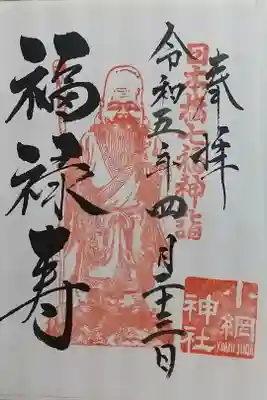 奉拝
日本橋七福神詣
令和五年四月十三日
福禄寿
小網
神社
KOAMI JINJA